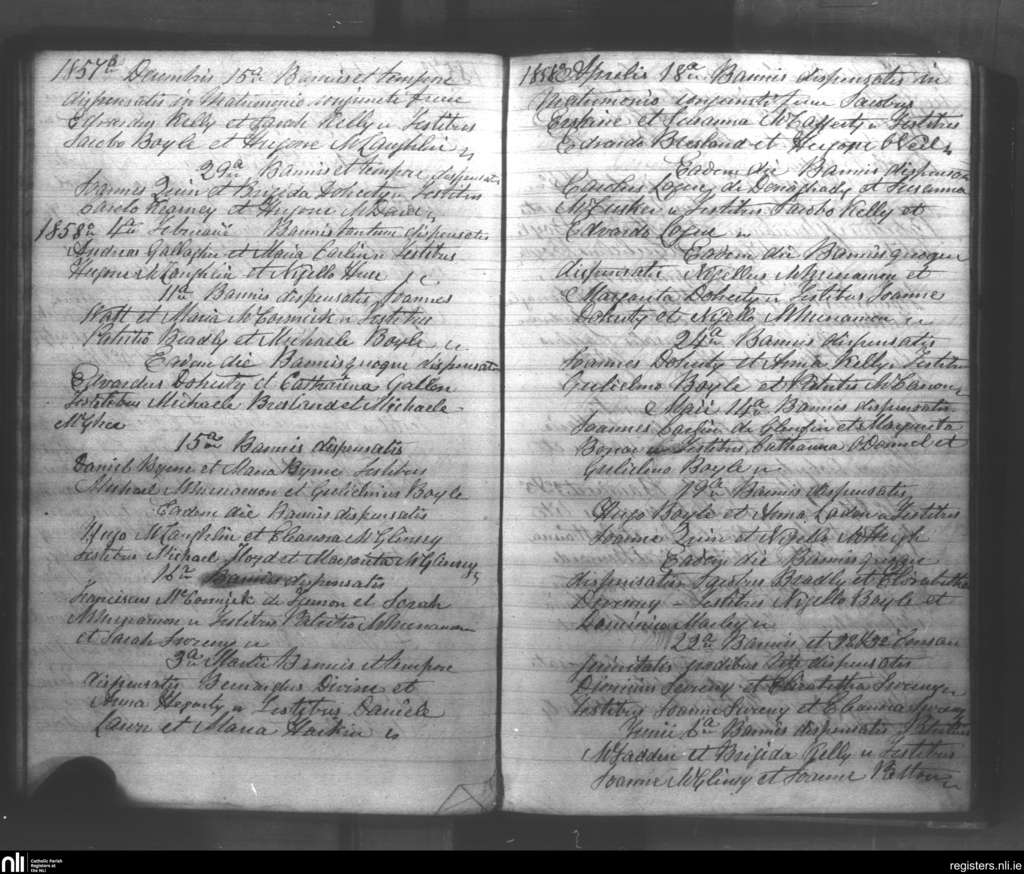 1857º Decembris 15ª Bannis et tempore
dispensatis in Matrimonio conjuncti fuere
Edvardus Kelly et Sarah Kelly Testibus
Jacobo Boyle et Hugone McLaughlin
29ª Bannis et tempore dispensatis
Joannes Quin et Brigida Doherty Testibus
Carolo Kearney et Hugone
1858º 4ª Februarii Bannis tantum dispensatis
Andreas Gallagher et Maria Testibus
Hugone McLaughlin et Nigello
11ª Bannis dispensatis Joannes
Watt et Maria McCormick Testibus
Patritio Beadly et Michaele Boyle
Eadem die Bannis quoque dispensatis
Edvardus Doherty et Catharina Gallen
Testibus Michaele Bresland et Michaele
McGhee
15ª Bannis dispensatis
Daniel Byrne et Maria Byrne Testibus
Michael McMenamon et Gulielmus Boyle
Eadem die Bannis dispensatis
Hugo McLaughlin et Eleanora McGlinsy
testibus Michael Floyd et Margarita McGlinsy
16ª Bannis dispensatis
Franciscus McCormick de et Sarah
McMenamon Testibus Patritio McMenamon
et Sarah Sweeny
3ª Martii Bannis et tempore
dispensatis Bernardus Divine et
Anna Hegarty Testibus Daniele
et Maria Harkin
1858º Aprilis 18ª Bannis dispensatis in
Matrimonio conjuncti fuere Jacobus
et Susanna McCafferty Testibus
Edvardo Bresland et Hugone O'Neill
Eadem die Bannis dispensatis
Carolus Logue de et Susanna
McCusker Testibus Jacobo Kelly et
Edvardo Logue
Eadem die Bannis quoque
dispensatis Nigellus McMenamon et
Margarita Doherty Testibus Joannes
Doherty et Nigello McMenamon
24ª Bannis dispensatis
Joannes Doherty et Anna Kelly Testibus
Gulielmo Boyle et Patritio
Maii 14ª Bannis dispensatis
Joannes de et Margarita
Testibus Catharina O'Donnel et
Gulielmo Boyle
19ª Bannis dispensatis
Hugo Boyle et Anna Testibus
Joanne Quin et Nigello McHugh
Eadem die Bannis quoque
dispensatis Jacobus Beadly et Elizabetha
Deveny Testibus Nigello Boyle et
Dominico
22ª Bannis et
dispensatis
Dionisius Sweeny et Elizabetha Sweeny
Testibus Joanne Sweeny et Eleanora Sweeny
Junii 6ª Bannis dispensatis Patritius
McFadden et Brigida Kelly Testibus
Joanne McGlinsy et Joanne Patton
nli
Catholic Parish
Registers at
the NLI
registers.nli.ie